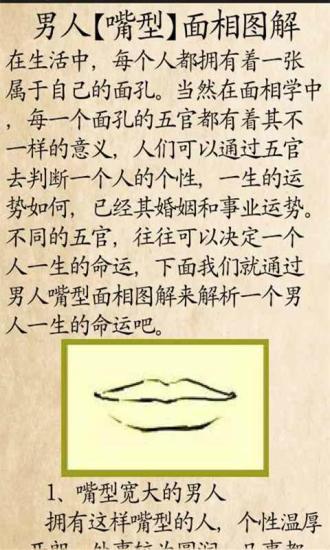 男人【嘴型】面相图解
在生活中，每个人都拥有着一张
属于自己的面孔。当然在面相学中
，每一个面孔的五官都有着其不
一样的意义，人们可以通过五官
去判断一个人的个性，一生的运
势如何，已经其婚姻和事业运势。
不同的五官，往往可以决定一个
人一生的命运，下面我们就通过
男人嘴型面相图解来解析一个男
人一生的命运吧。
1、嘴型宽大的男人
拥有这样嘴型的人，个性温厚